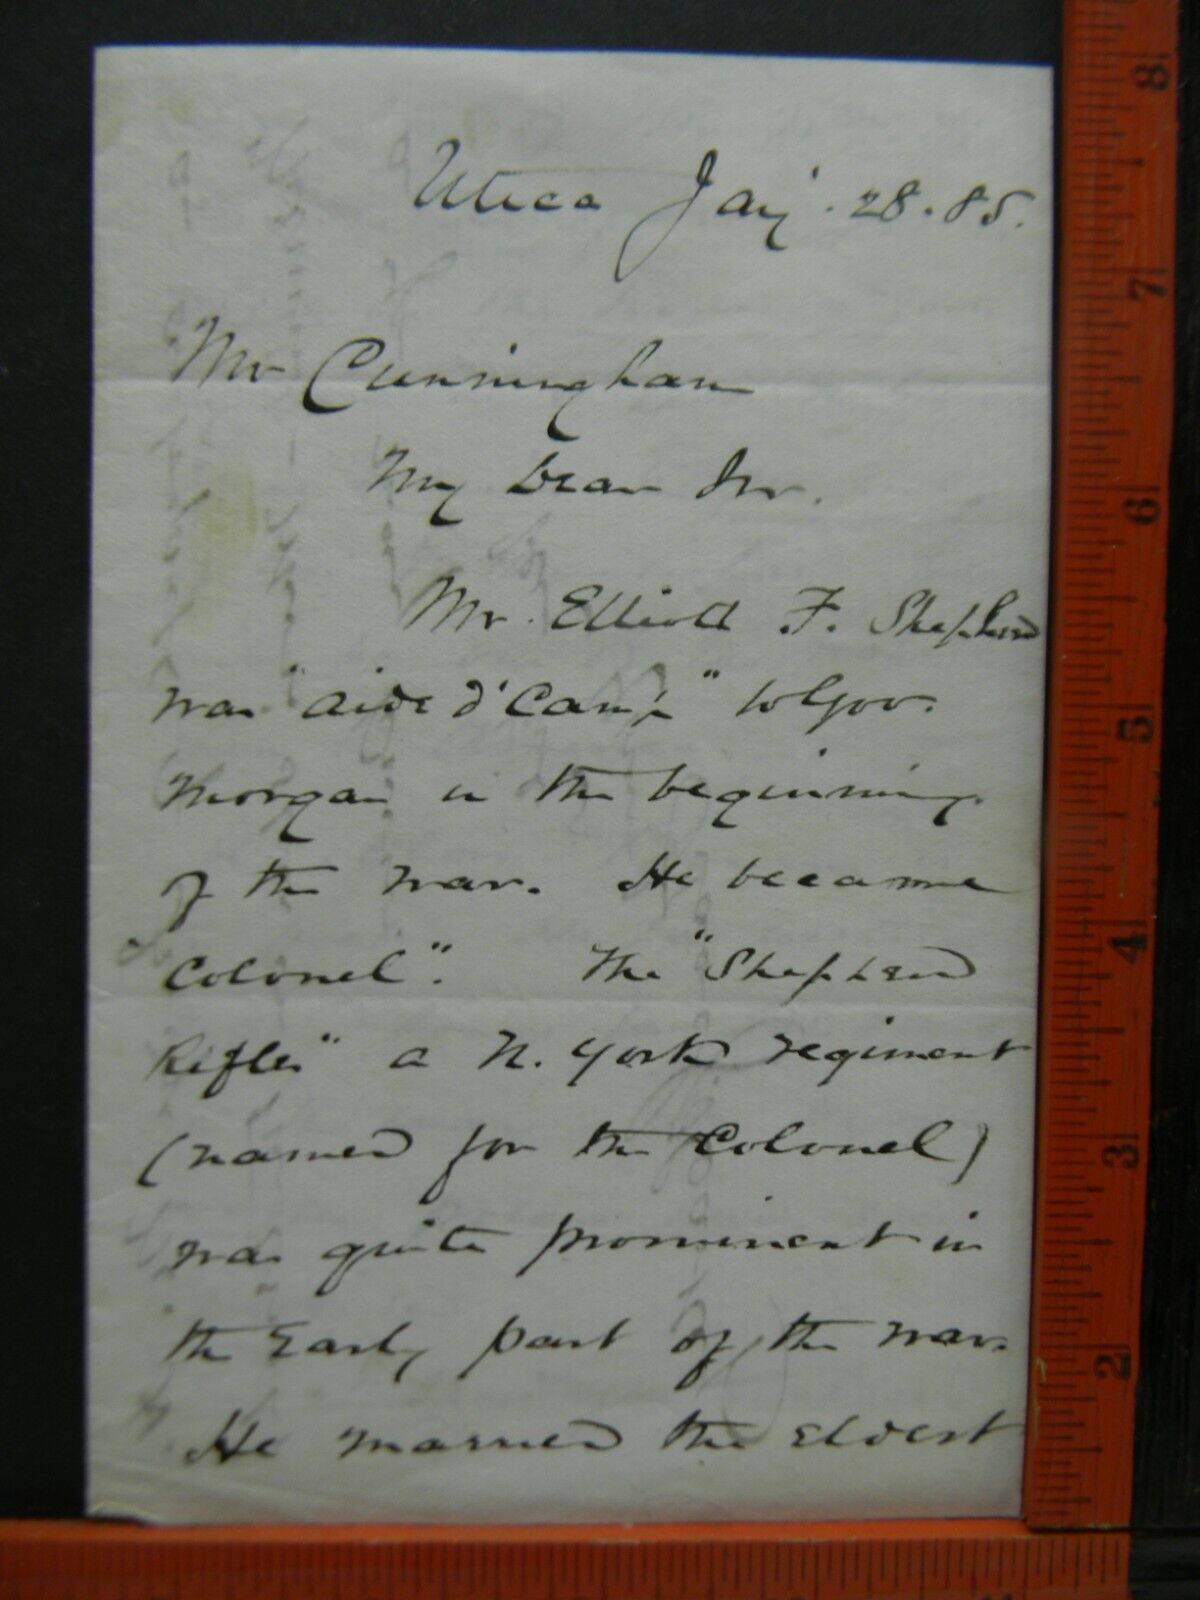 Utica Jany. 28. 85.
Mr Cunningham
My Dear Sir.
Mr. Elliott F. Shepherd
was "aide d'Camp" to Gov.
Morgan in the beginning
of the war. He became
Colonel". The "Shepherd
Rifles" a N. York regiment
(named for the Colonel)
was quite prominent in
the Early part of the war.
He married the Eldest
8
7
6
5
4
3
2